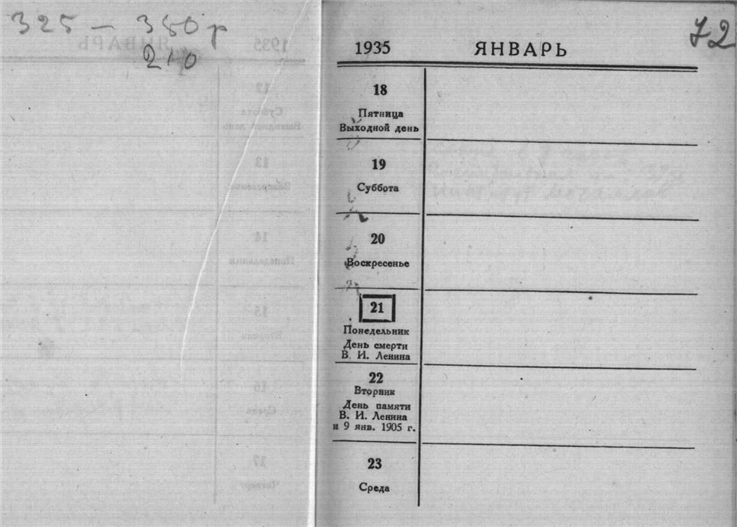 325 — 350 р
210
72
1935 ЯНВАРЬ
18
Пятница
Выходной день
19
Суббота
20
Воскресенье
21
Понедельник
День смерти
В. И. Ленина
22
Вторник
День памяти
В. И. Ленина
и 9 янв. 1905 г.
23
Среда